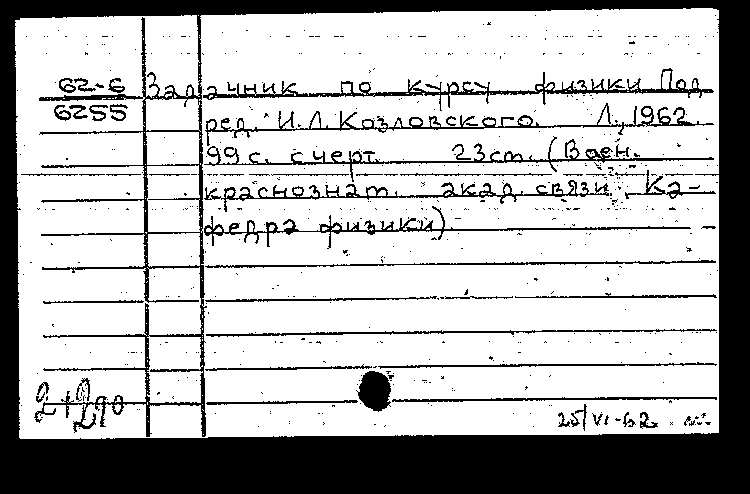 62-6 Задачник по курсу физики Под
6255 ред. И.Л.Козловского. Л., 1962.
99 с. с черт. 23 см. (Воен.
краснознам. акад. связи. Ка-
федра физики).
25/VI-62.